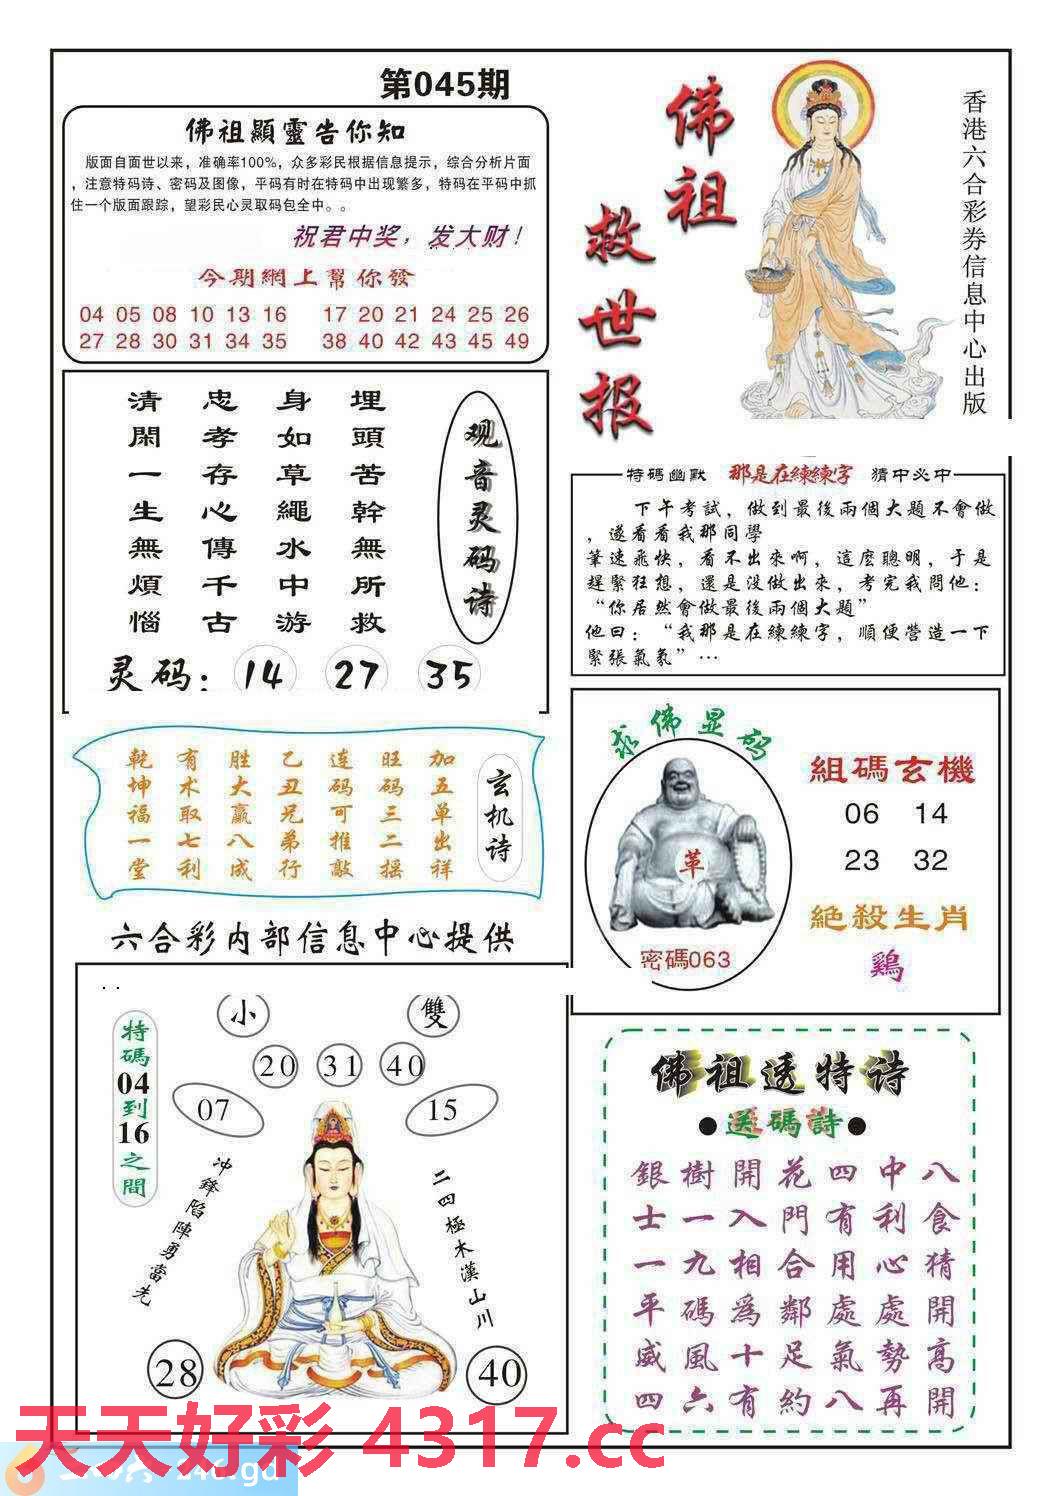 第045期
佛祖顯靈告你知
版面自面世以来，准确率100%，众多彩民根据信息提示，综合分析片面
，注意特码诗、密码及图像，平码有时在特码中出现繁多，特码在平码中抓
住一个版面跟踪，望彩民心灵取码包全中。。
祝君中奖，发大财！
今期網上幫你發
04 05 08 10 13 16 17 20 21 24 25 26
27 28 30 31 34 35 38 40 42 43 45 49
佛祖
救世报
香港六合彩券信息中心出版
观音灵码诗
埋頭苦幹無所救
身如草繩水中游
忠孝存心傳千古
清閑一生無煩惱
灵码：14 27 35
特碼幽默 那是在練練字 猜中必中
下午考試，做到最後兩個大題不會做
，遂看看我那同學
筆速飛快，看不出來啊，這麽聰明，于是
趕緊狂想，還是没做出來，考完我問他：
“你居然會做最後兩個大題”
他曰：“我那是在練練字，順便營造一下
緊張氣氛”…
玄机诗
加五单出祥
旺码三二摇
连码可推敲
乙丑兄弟行
胜大赢八成
有术取七利
乾坤福一堂
求佛显码
革
密碼063
組碼玄機
06 14
23 32
絕殺生肖
鷄
六合彩内部信息中心提供
小 雙
20 31 40
07 15
特碼04到16之間
冲鋒陷陣勇當先
二四極木漢山川
28 40
佛祖透特诗
●送碼詩●
銀樹開花四中八
士一入門有利食
一九相合用心猜
平碼爲鄰處處開
威風十足氣勢高
四六有約八再開
天天好彩 4317.cc
246.gd